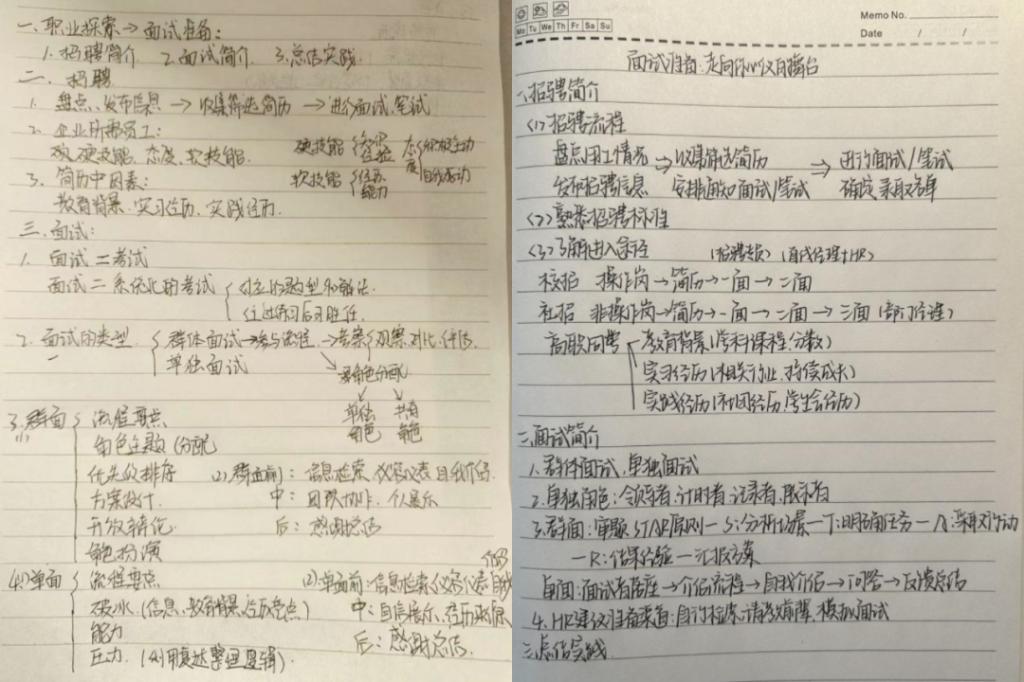 一、职业探索→面试准备:
1.招聘简介 2.面试简介 3.总结实践
二、招聘
1. 盘点、发布信息→收集筛选简历→进行面试笔试
2. 企业所需员工:
硬技能、态度、软技能.
硬技能{知识 经验
态度{积极主动 自我驱动
软技能{性格 能力
3. 简历中因素:
教育背景.实习经历.实践经历.
三.面试:
1. 面试二考试
面试二系统化的考试
经过练习后可胜任.
2. 面试的类型
群体面试→参与流程→考察{观察.对比.评估
单独面试
角色分配
单独角色 共有角色
3.群面
(1) 流程要点
角色主题 分配
优先级排序
方案设计
开放辩论
角色扮演
(2)群面前: 信息检索.仪容仪表.自我介绍.
中: 团队协作.个人展示
后: 感谢总结
4.单面
(1) 流程要点
破冰.(信息、教育背景、经历亮点)
能力
压力.(利用表达整理逻辑).
(2)单面前:信息检索.仪容仪表.自我介绍
中:自信展示.经历
后:感谢总结.
Memo No.
Mo Tu We Th Fr Sa Su
Date / /
面试准备:走向你的擂台
一.招聘简介
<1>招聘流程
盘点用工情况⇒收集筛选简历⇒进行面试/笔试
发布招聘信息 安排通知面试/笔试 确定录取名单
<2>熟悉招聘标准
<3>了解进入途径 (招聘专员) (直线经理+HR)
校招 操作岗→简历→一面→二面
社招 非操作岗→简历→一面→二面→三面(部门经理)
高职同学 教育背景(学科课程.分数)
实习经历(相关行业.持续成长)
实践经历(社团经历.学生会经历)
二.面试简介
1.群体面试.单独面试
2.单独角色:领导者.计时者.记录者.展示者
3.群面:审题.STAR原则—S:分析场景—T:明确任务—A:采取行动
—R:结果经验—汇报方案
单面:面试者落座→介绍流程→自我介绍→问答→反馈总结
4.HR建议准备渠道:自行检索.请教前辈.模拟面试
三.总结实践